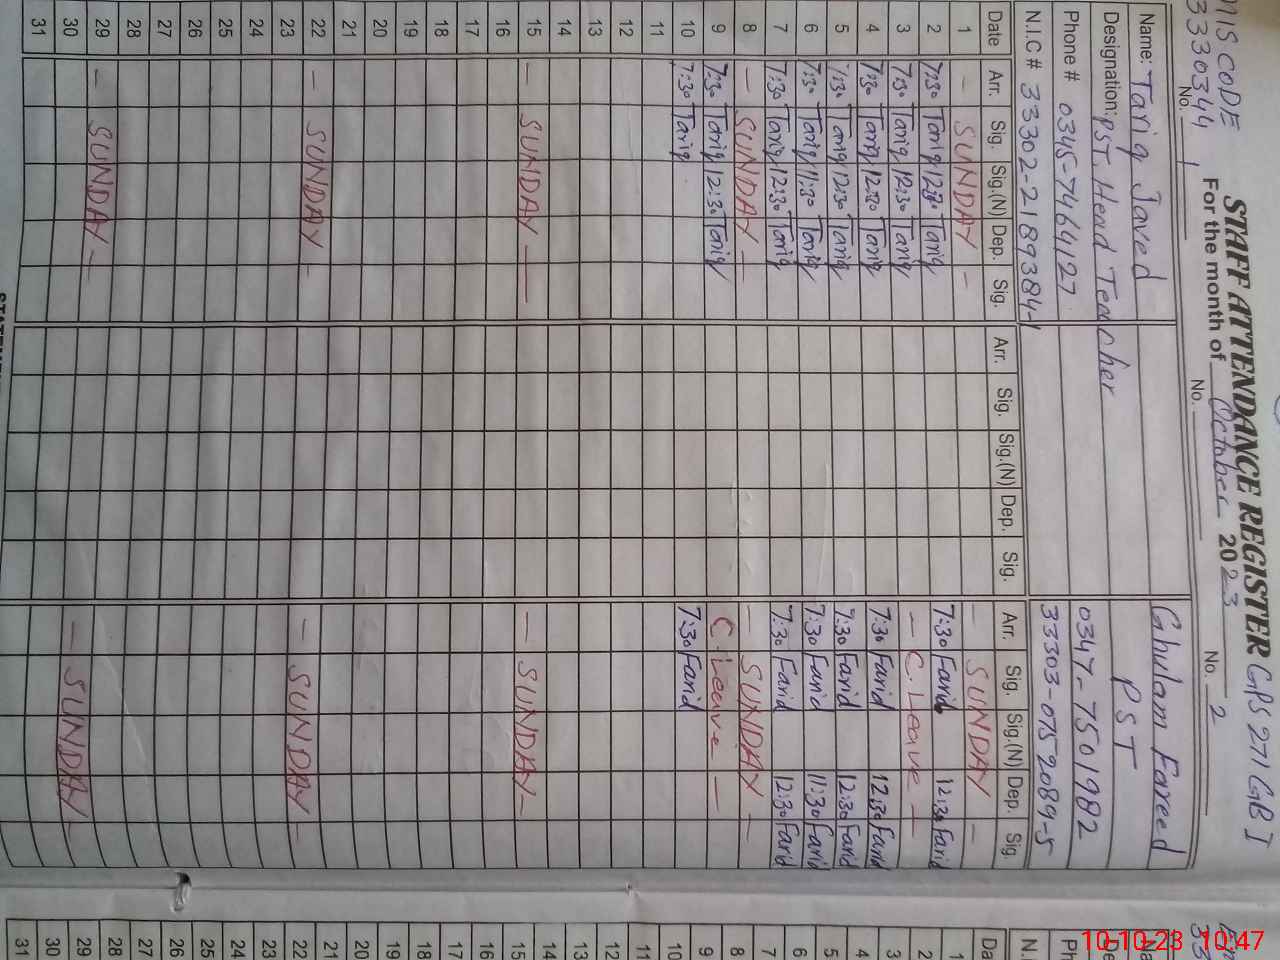 STAFF ATTENDANCE REGISTER GPS 271 GB I
For the month of October 2023
MIS CODE
33330344
No. 1
No.
No. 2
Name: Tariq Javed
Designation: PST. Head Teacher
Phone # 0345-7464127
N.I.C # 33302-2189384-1
Ghulam Fareed
PST
0347-7501982
33303-0752089-5
Date Arr. Sig. Sig.(N) Dep. Sig. Arr. Sig. Sig.(N) Dep. Sig. Arr. Sig. Sig.(N) Dep. Sig.
1 – SUNDAY – – SUNDAY –
2 7:30 Tariq 12:30 Tariq 7:30 Farid 12:30 Farid
3 7:30 Tariq 12:30 Tariq – C. Leave –
4 7:30 Tariq 12:30 Tariq 7:30 Farid 12:30 Farid
5 7:30 Tariq 12:30 Tariq 7:30 Farid 12:30 Farid
6 7:30 Tariq 11:30 Tariq 7:30 Farid 11:30 Farid
7 7:30 Tariq 12:30 Tariq 7:30 Farid 12:30 Farid
8 – SUNDAY – – SUNDAY –
9 7:30 Tariq 12:30 Tariq C. Leave –
10 7:30 Tariq 7:30 Farid
11
12
13
14
15 – SUNDAY – – SUNDAY –
16
17
18
19
20
21
22 – SUNDAY – – SUNDAY –
23
24
25
26
27
28
29 – SUNDAY – – SUNDAY –
30
31
Da
1
2
3
4
5
6
7
8
9
10
11
12
13
14
15
16
17
18
19
20
21
22
23
24
25
26
27
28
29
30
31
10-10-23 10:47